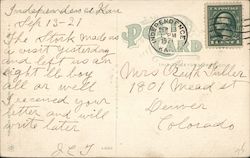 Independence Kan
Sep 13-21
The Stork made us
a visit yesterday
and left us an
eight lb boy
all are well
I received your
letter and will
write later
J.E.T
POST CARD
INDEPENDENCE
KAN.
Mrs Ruth Fuller
1801 Mead st
Denver
Colorado